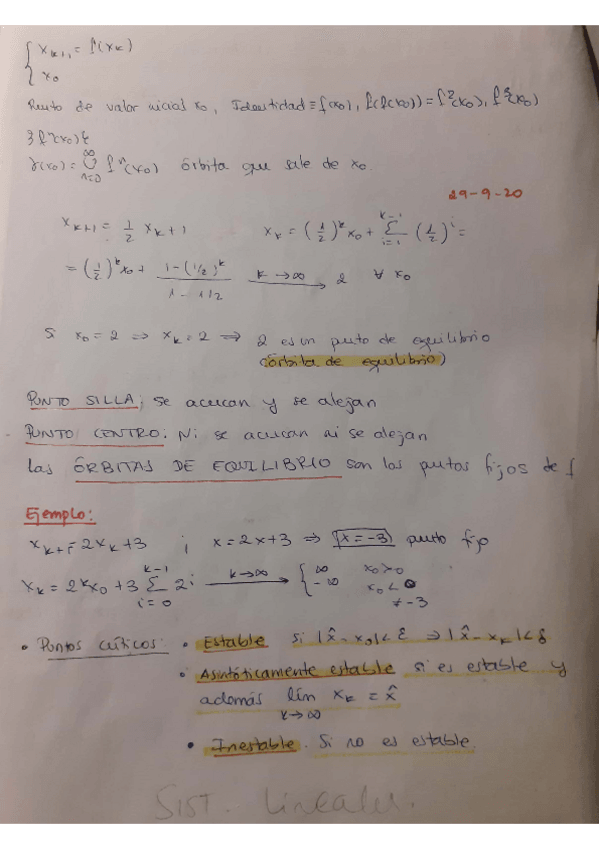 { x_{k+1} = f(x_k)
x_0
Punto de valor inicial x_0, Identidad ≡ f(x_0), f(f(x_0)) = f²(x_0), f³(x_0)
}f^n(x_0){
γ(x_0) = ⋃_{n=0}^{∞} f^n(x_0) órbita que sale de x_0
29-9-20
x_{k+1} = 1/2 x_k + 1    x_k = (1/2)^k x_0 + Σ_{i=1}^{k-1} (1/2)^i =
= (1/2)^k x_0 + (1-(1/2)^k)/(1-1/2) → (k→∞) 2 ∀ x_0
Si x_0 = 2 ⇒ x_k = 2 ⇒ 2 es un punto de equilibrio
(órbita de equilibrio)
PUNTO SILLA; se acercan y se alejan
PUNTO CENTRO: Ni se acercan ni se alejan
Las ÓRBITAS DE EQUILIBRIO son los puntos fijos de f
Ejemplo:
x_{k+1} = 2x_k + 3 ; x = 2x + 3 ⇒ x = -3 punto fijo
x_k = 2^k x_0 + 3 Σ_{i=0}^{k-1} 2^i → (k→∞) { ∞ x_0 > 0
-∞ x_0 < 0
≠ -3
• Puntos críticos: • Estable si |x̂ - x_0| < ε ⇒ |x̂ - x_k| < δ
• Asintóticamente estable si es estable y
además lím_{k→∞} x_k = x̂
• Inestable. Si no es estable.
SIST. Lineales.